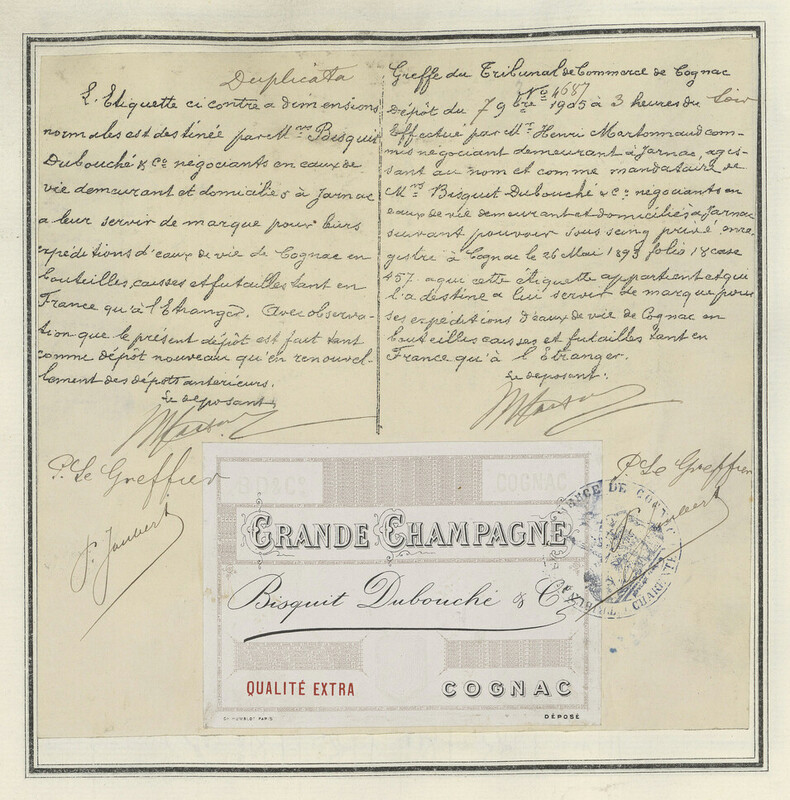 Duplicata
L'Etiquette ci contre a dimensions
normales est destinée par Mrs Bisquit
Dubouché & Co négociants en eaux de
vie demeurant et domiciliés à Jarnac
a leur servir de marque pour leurs
expéditions d'eaux de vie de Cognac en
bouteilles, caisses et futailles tant en
France qu'à l'Etranger. Avec observa-
tion que le présent dépôt est fait tant
comme dépôt nouveau qu'en renouvel-
lement des dépôts antérieurs.
Le déposant,
P. Le Greffier
Greffe du Tribunal de Commerce de Cognac
No 4687
Dépôt du 7 9bre 1905 à 3 heures du Soir
Effectué par Mr Henri Martonnaud com-
mis négociant demeurant à Jarnac, agis-
sant au nom et comme mandataire de
Mrs Bisquit Dubouché & Co négociants en
eaux de vie demeurant et domiciliés à Jarnac
suivant pouvoir sous seing privé enre
gistré à Cognac le 26 Mai 1893 folio 18 case
457. a qui cette étiquette appartient et qui
l'a destine a lui servir de marque pour
ses expéditions d'eaux de vie de Cognac en
bouteilles caisses et futailles tant en
France qu'à l'Etranger.
Le déposant:
P. Le Greffier
COGNAC
GRANDE CHAMPAGNE
Bisquit Dubouché & Cie
QUALITÉ EXTRA
COGNAC
PARIS
DÉPOSÉ
DE COGNAC
CHARENTE